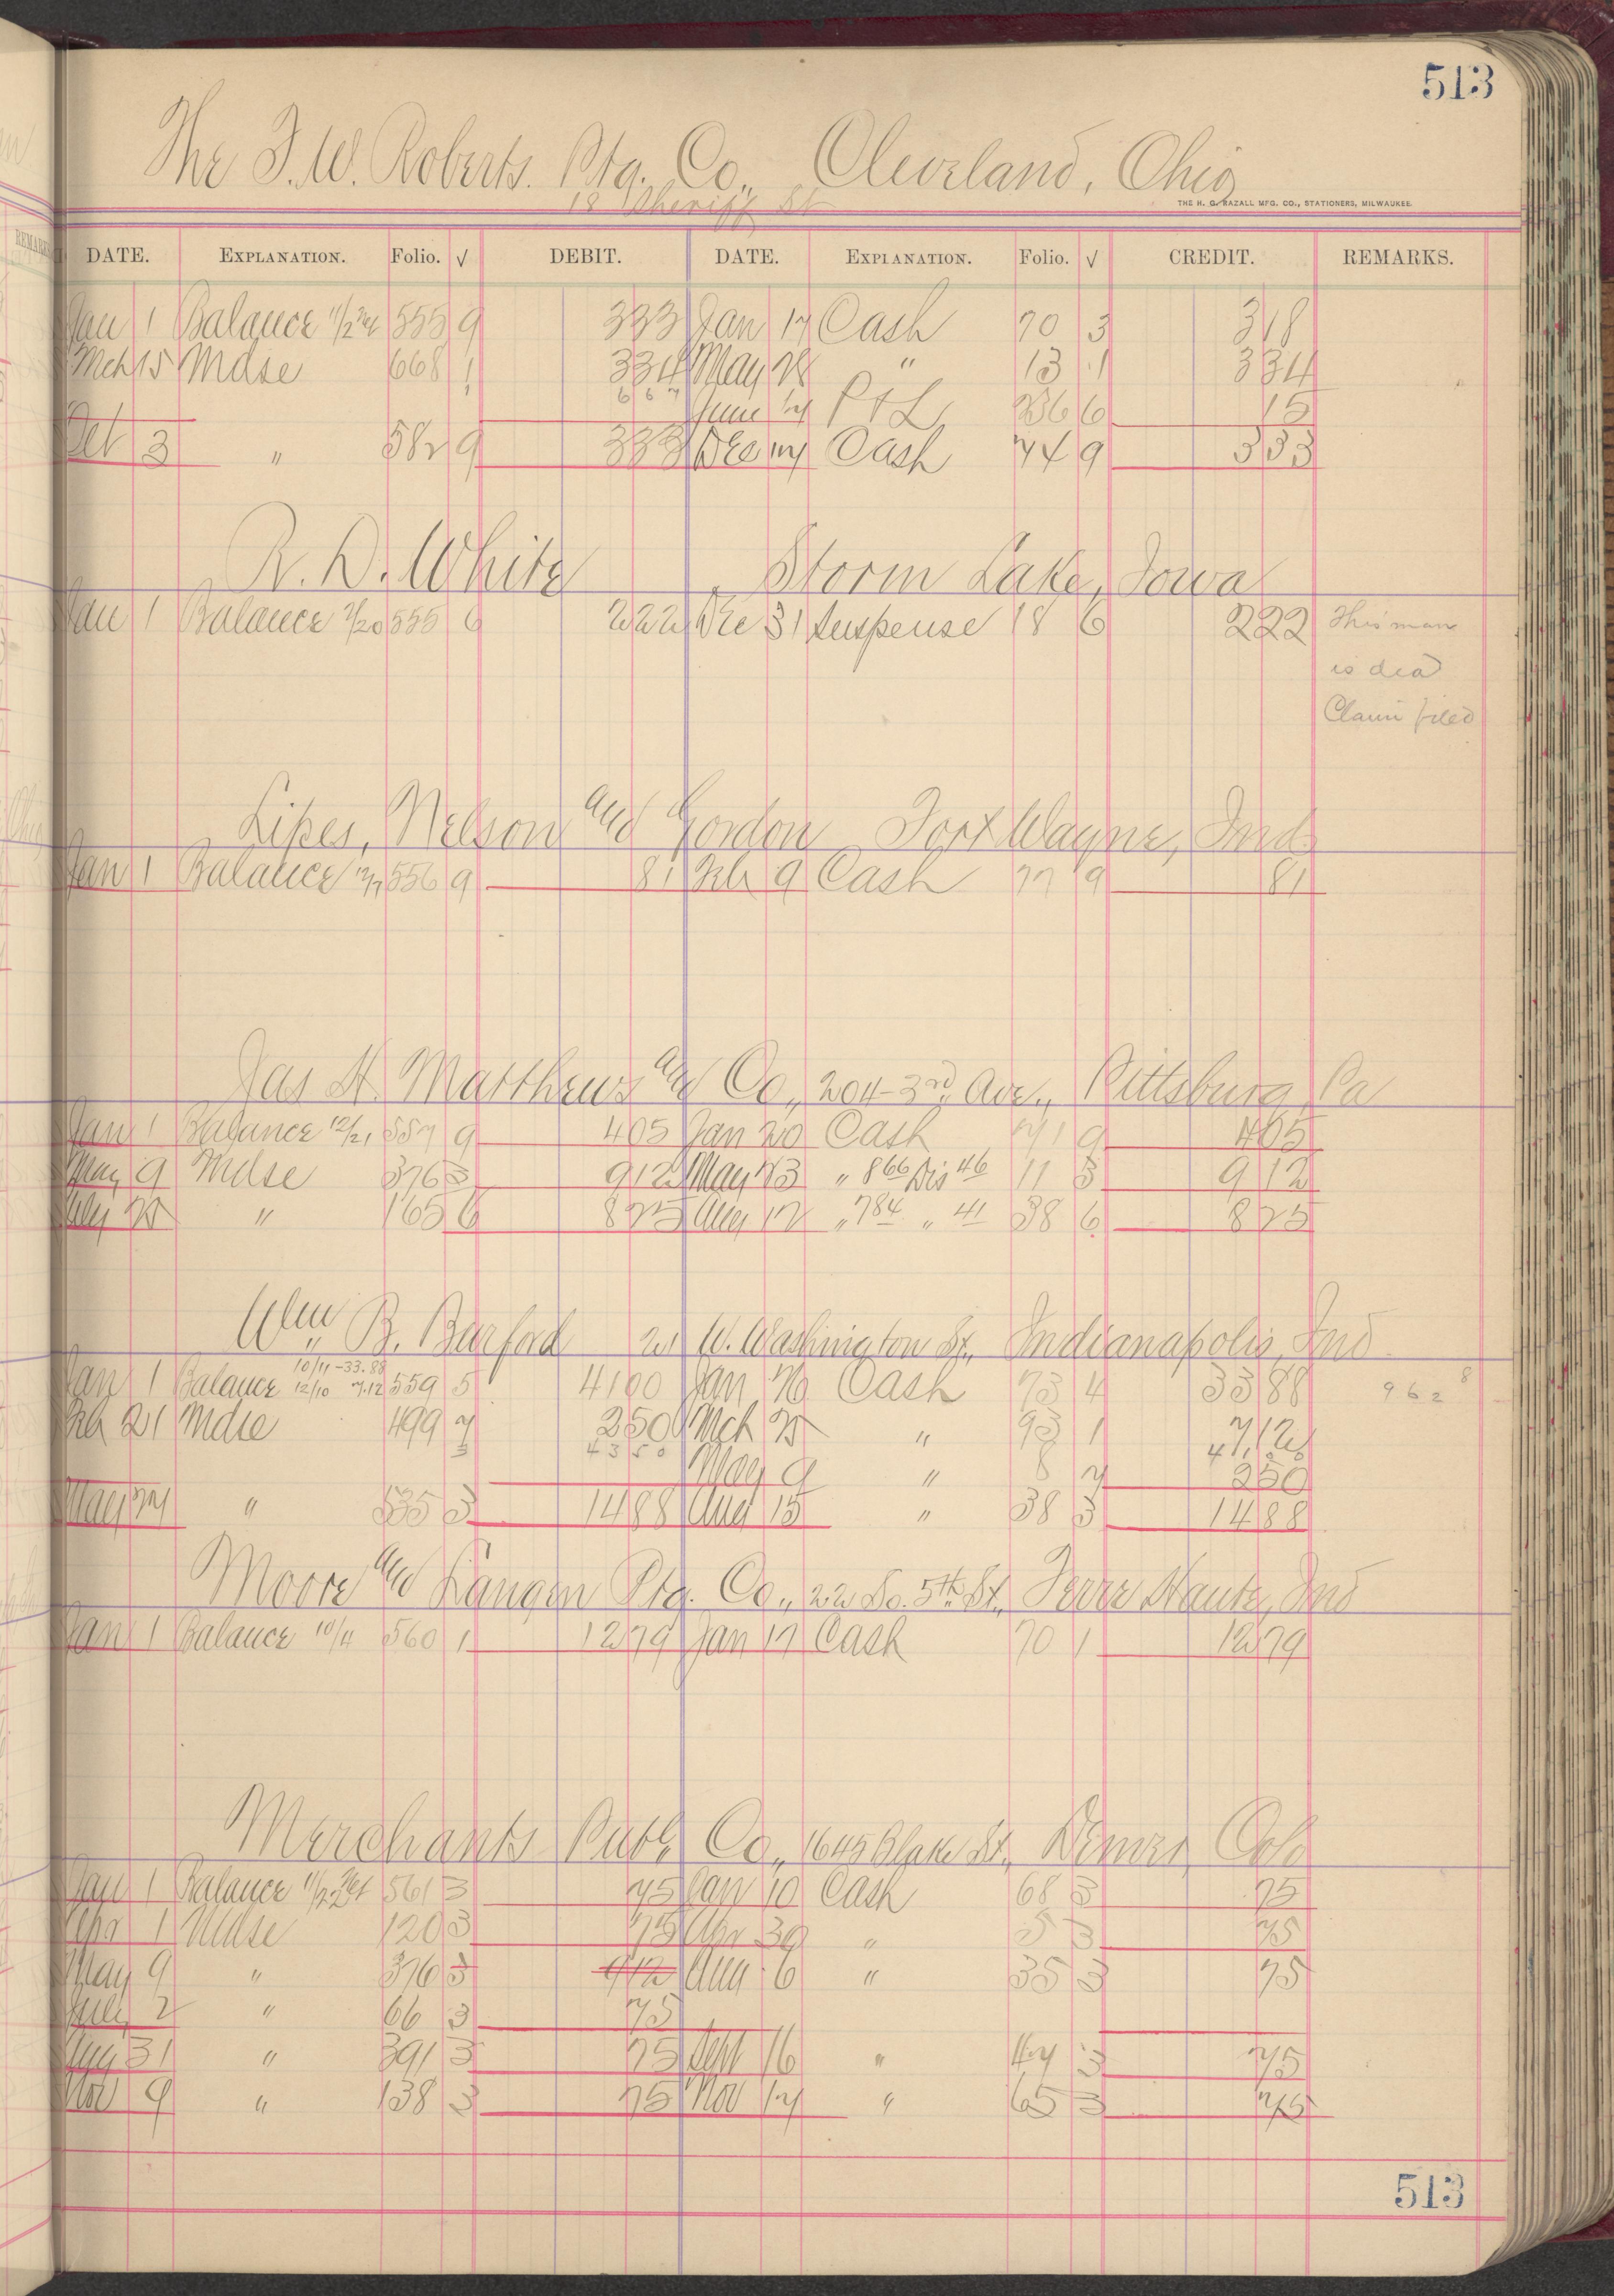 513
The F.W. Roberts. Ptg. Co., Cleveland, Ohio
18 Sheriff St
THE H. G. RAZALL MFG. CO., STATIONERS, MILWAUKEE.
DATE. EXPLANATION. Folio. √ DEBIT. DATE. EXPLANATION. Folio. √ CREDIT. REMARKS.
Jan 1 Balance 555 9 333 Jan 17 Cash 70 3 318
Mch 15 Mdse 668 1 334 May 28 " 13 1 334
667 June 14 P & L 236 6 15
Oct 3 " 582 9 333 Dec 17 Cash 74 9 333
R. D. White, Storm Lake, Iowa
Jan 1 Balance 555 6 222 Dec 31 Suspense 18 6 222 This man
is dead
Claim filed
Lipes, Nelson and Gordon Fort Wayne, Ind
Jan 1 Balance 12/7 556 9 81 Feb 9 Cash 77 9 81
Jas H. Matthews and Co., 204-3rd Ave., Pittsburg Pa
Jan 1 Balance 12/21 557 9 405 Jan 20 Cash 71 9 405
May 9 Mdse 376 3 912 May 23 " 866 Dis 46 11 3 912
July 25 " 165 6 825 Aug 12 " 784 " 41 38 6 825
Wm B. Burford 21 W. Washington St., Indianapolis, Ind
10/11-33.88
Jan 1 Balance 12/10 7.12 559 5 4100 Jan 26 Cash 73 4 3388 962 8
Feb 21 Mdse 499 7 250 Mch 25 " 93 1 712
3 4350 May 9 " 8 7 250
May 27 " 535 3 1488 Aug 13 " 38 3 1488
Moore and Langen Ptg. Co., 22 So. 5th St., Terre Haute, Ind
Jan 1 Balance 10/11 560 1 1279 Jan 17 Cash 70 1 1279
Merchants Publ. Co., 1645 Blake St., Denver, Colo
Jan 1 Balance 561 3 75 Jan 10 Cash 68 3 75
Apr 1 Mdse 120 3 75 Apr 30 " 5 3 75
May 9 " 376 3 912 Aug 6 " 35 3 75
July 2 " 66 3 75
Aug 31 " 391 3 75 Sept 16 " 47 3 75
Nov 9 " 138 3 75 Nov 17 " 65 3 75
513